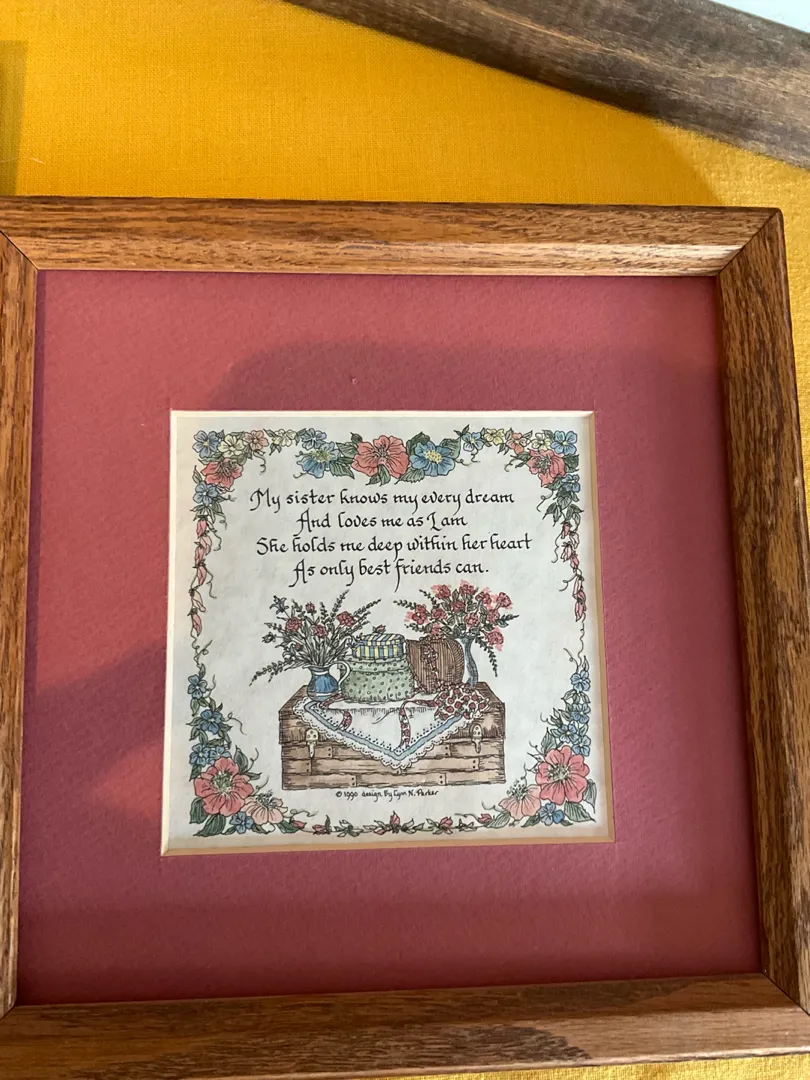 My sister knows my every dream
And loves me as I am
She holds me deep within her heart
As only best friends can.
© 1990 design By Lyn N. Parker